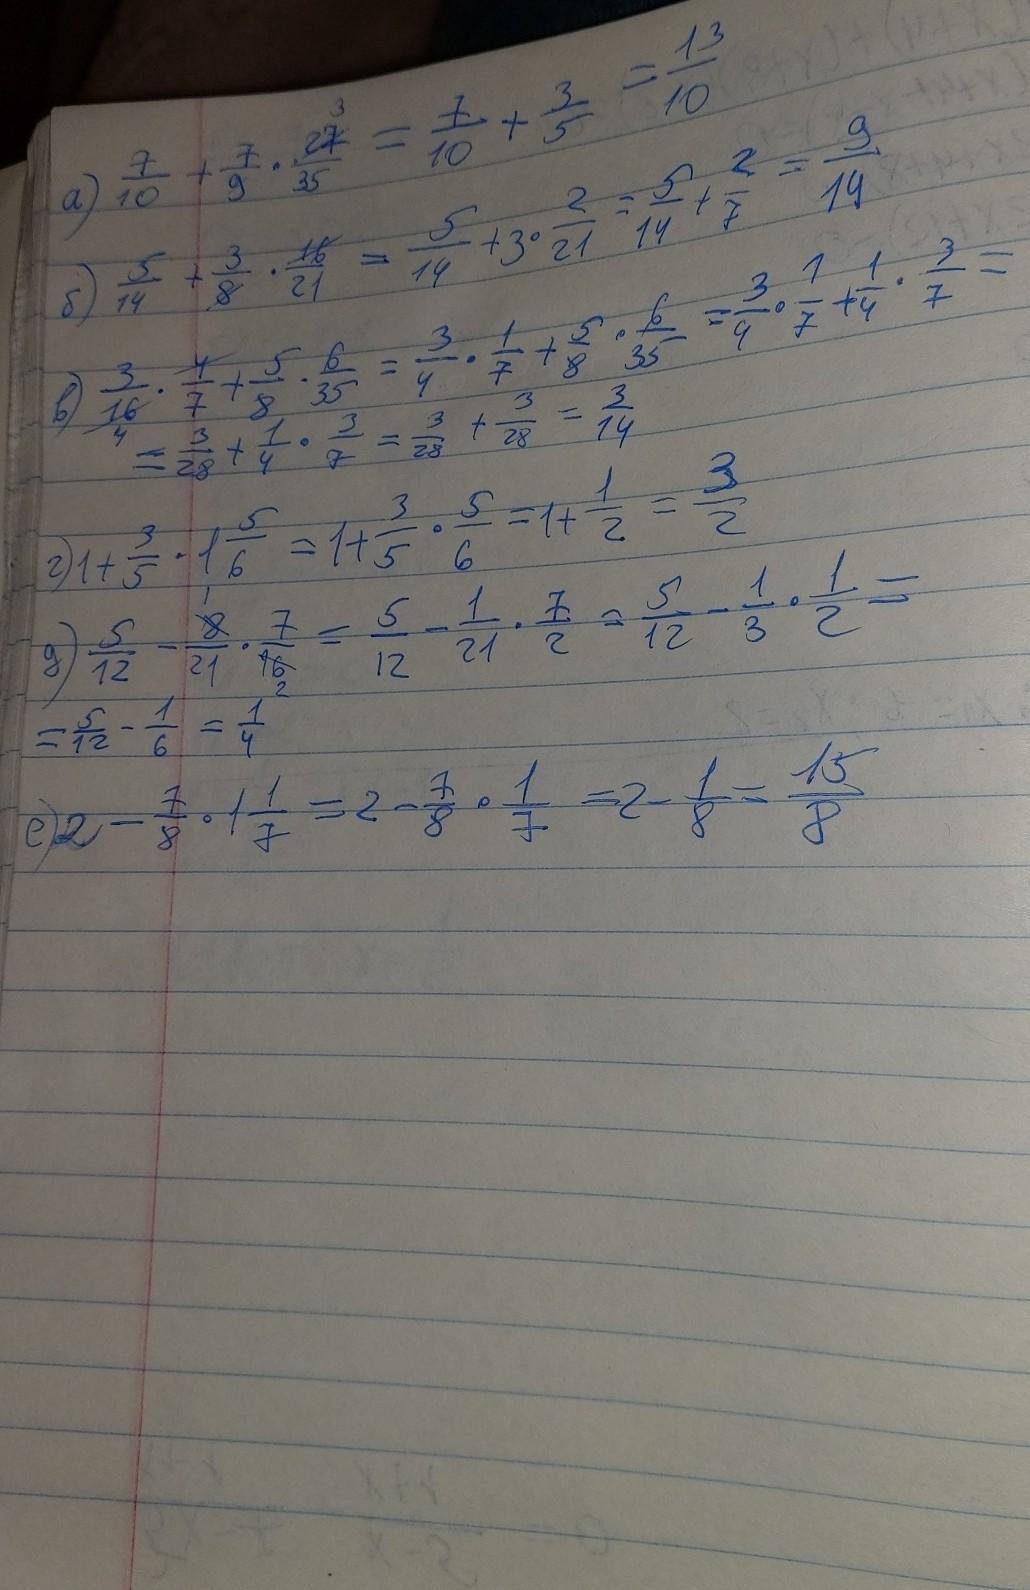 а) 7/10 + 7/9 · 27/35 3 = 7/10 + 3/5 = 13/10
б) 5/14 + 3/8 · 16/21 = 5/14 + 3 · 2/21 = 5/14 + 2/7 = 9/14
в) 3/16 4 · 4/7 + 5/8 · 6/35 = 3/4 · 1/7 + 5/8 · 6/35 = 3/4 · 1/7 + 1/4 · 3/7 =
= 3/28 + 1/4 · 3/7 = 3/28 + 3/28 = 3/14
г) 1 + 3/5 · 1 5/6 = 1 + 3/5 · 5/6 = 1 + 1/2 = 3/2
д) 5/12 - 8/21 1 · 7/16 2 = 5/12 - 1/21 · 7/2 = 5/12 - 1/3 · 1/2 =
= 5/12 - 1/6 = 1/4
е) 2 - 7/8 · 1 1/7 = 2 - 7/8 · 1/7 = 2 - 1/8 = 15/8